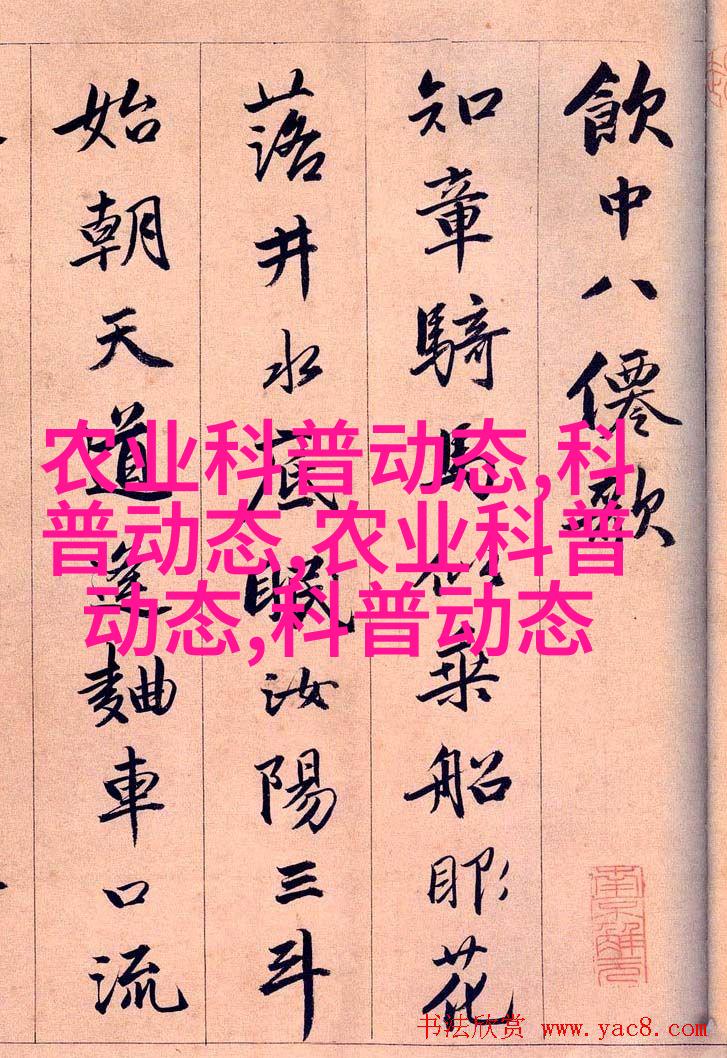 飲中八僊歌
知章騎馬似乘船眼花
落井水底眠汝陽三斗
始朝天道逢麯車口流
农业科普动态,科
普动态,农业科普
动态,科普动态
南京解元
书法欣赏 www.yac8.com